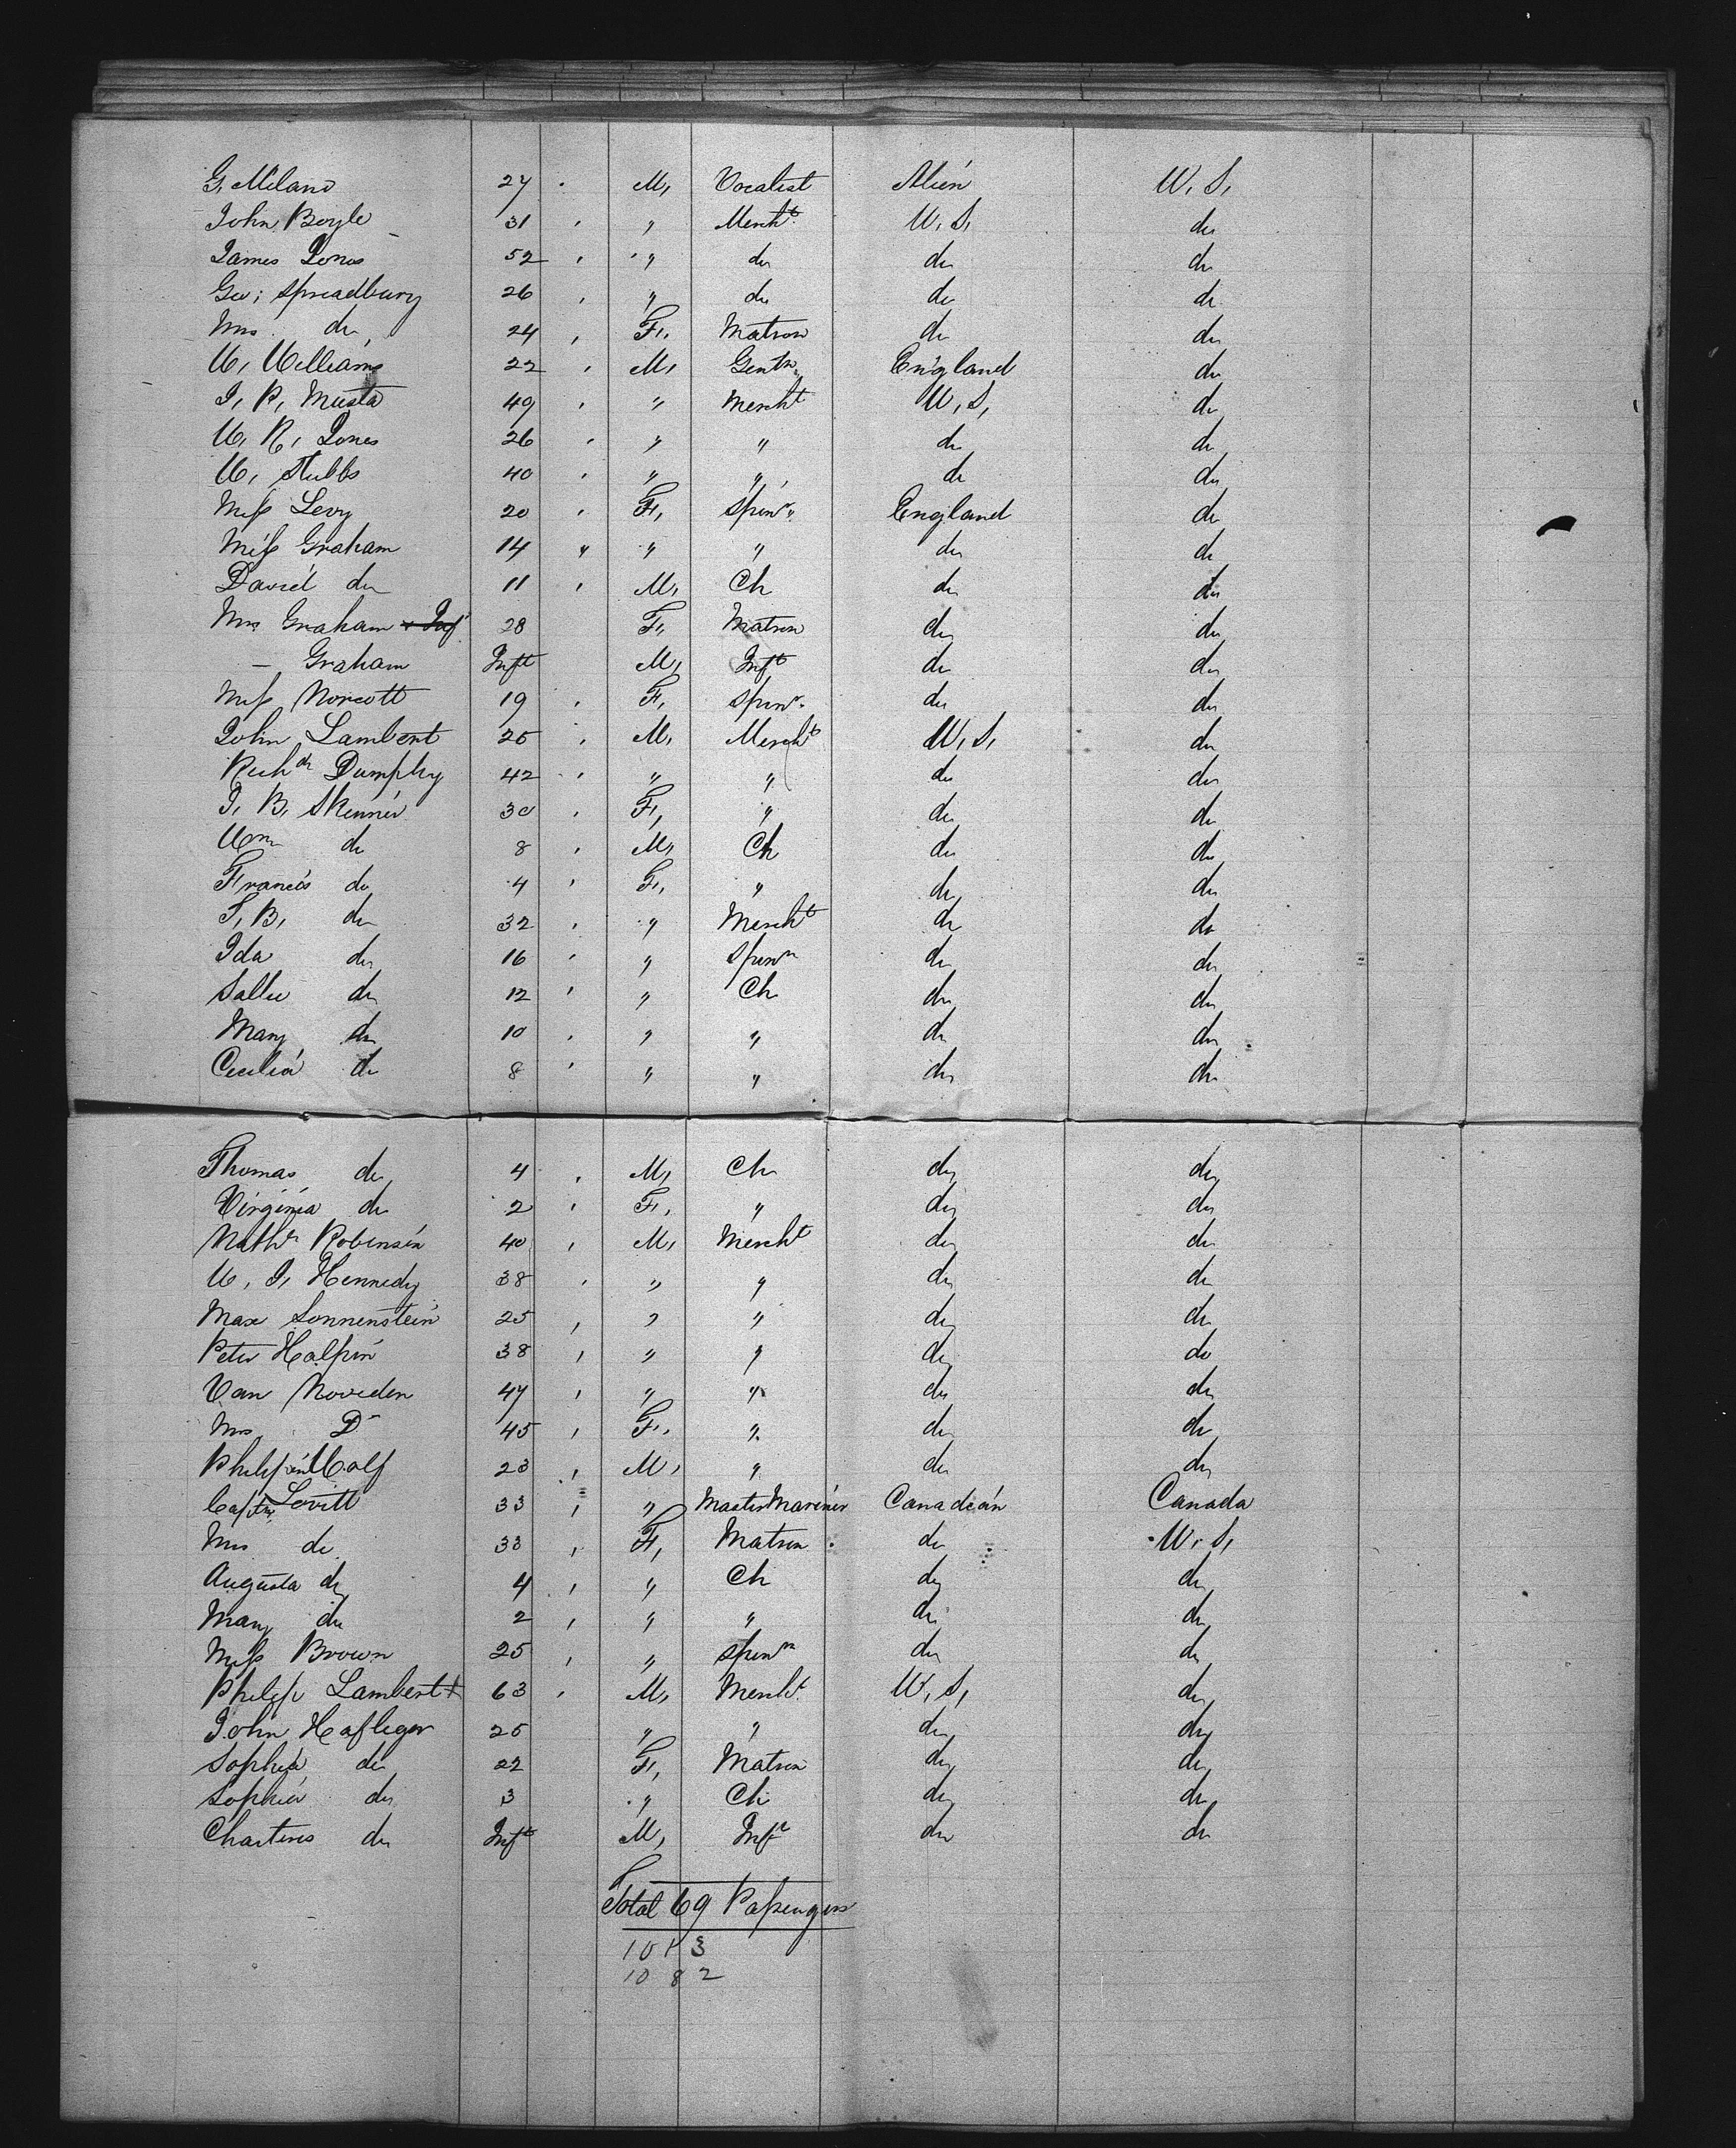 G. Milano 27 M. Vocalist Alien U. S.
John Boyle 31 " Mercht U. S. do
James Jones 52 " do do do
Geo: Spreadbury 26 " do do do
Mrs do 24 F. Matron do do
W. Williams 22 M. Gentn England do
J. P. Musta 49 " Mercht U. S. do
W. R. Jones 26 " " do do
W. Stubbs 40 " " do do
Miss Levy 20 F. Spinr England do
Miss Graham 14 " " " do do
David do 11 M. Ch do do
Mrs Graham + Inf 28 F. Matron do do
– Graham Inft M. Inft do do
Miss Norcott 19 F. Spinr do do
John Lambert 25 M. Mercht U. S. do
Richd Dumphy 42 " " do do
J. B. Skinner 30 F. " do do
Wm do 8 M. Ch do do
Francis do 4 F. " do do
S. B. do 32 " Mercht do do
Ida do 16 " Spinr do do
Sallie do 12 " Ch do do
Mary do 10 " " do do
Cecilia do 8 " " do do
Thomas do 4 M. Ch do do
Virginia do 2 F. " do do
Nathl Robinson 40 M. Mercht do do
W. J. Kennedy 38 " " do do
Max Sonnenstein 25 " " do do
Peter Halpin 38 " " do do
Van Noorden 47 " " do do
Mrs Do 45 F. " do do
Philip Wolf 23 M. " do do
Captn Lovitt 33 " Master Mariner Canadian Canada
Mrs do 33 F. Matron do U. S.
Augusta do 4 " Ch do do
Mary do 2 " " do do
Miss Brown 25 " Spinr do do
Philip Lambert + 63 M. Mercht U. S. do
John Hafliger 25 " " do do
Sophia do 22 F. Matron do do
Sophia do 3 " Ch do do
Charters do Inft M. Inft do do
Total 69 Passengers
1013
1082